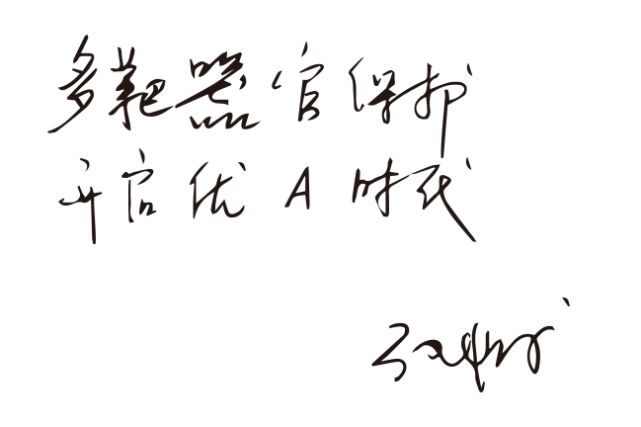 多靶器官保护
开官优 A 时代